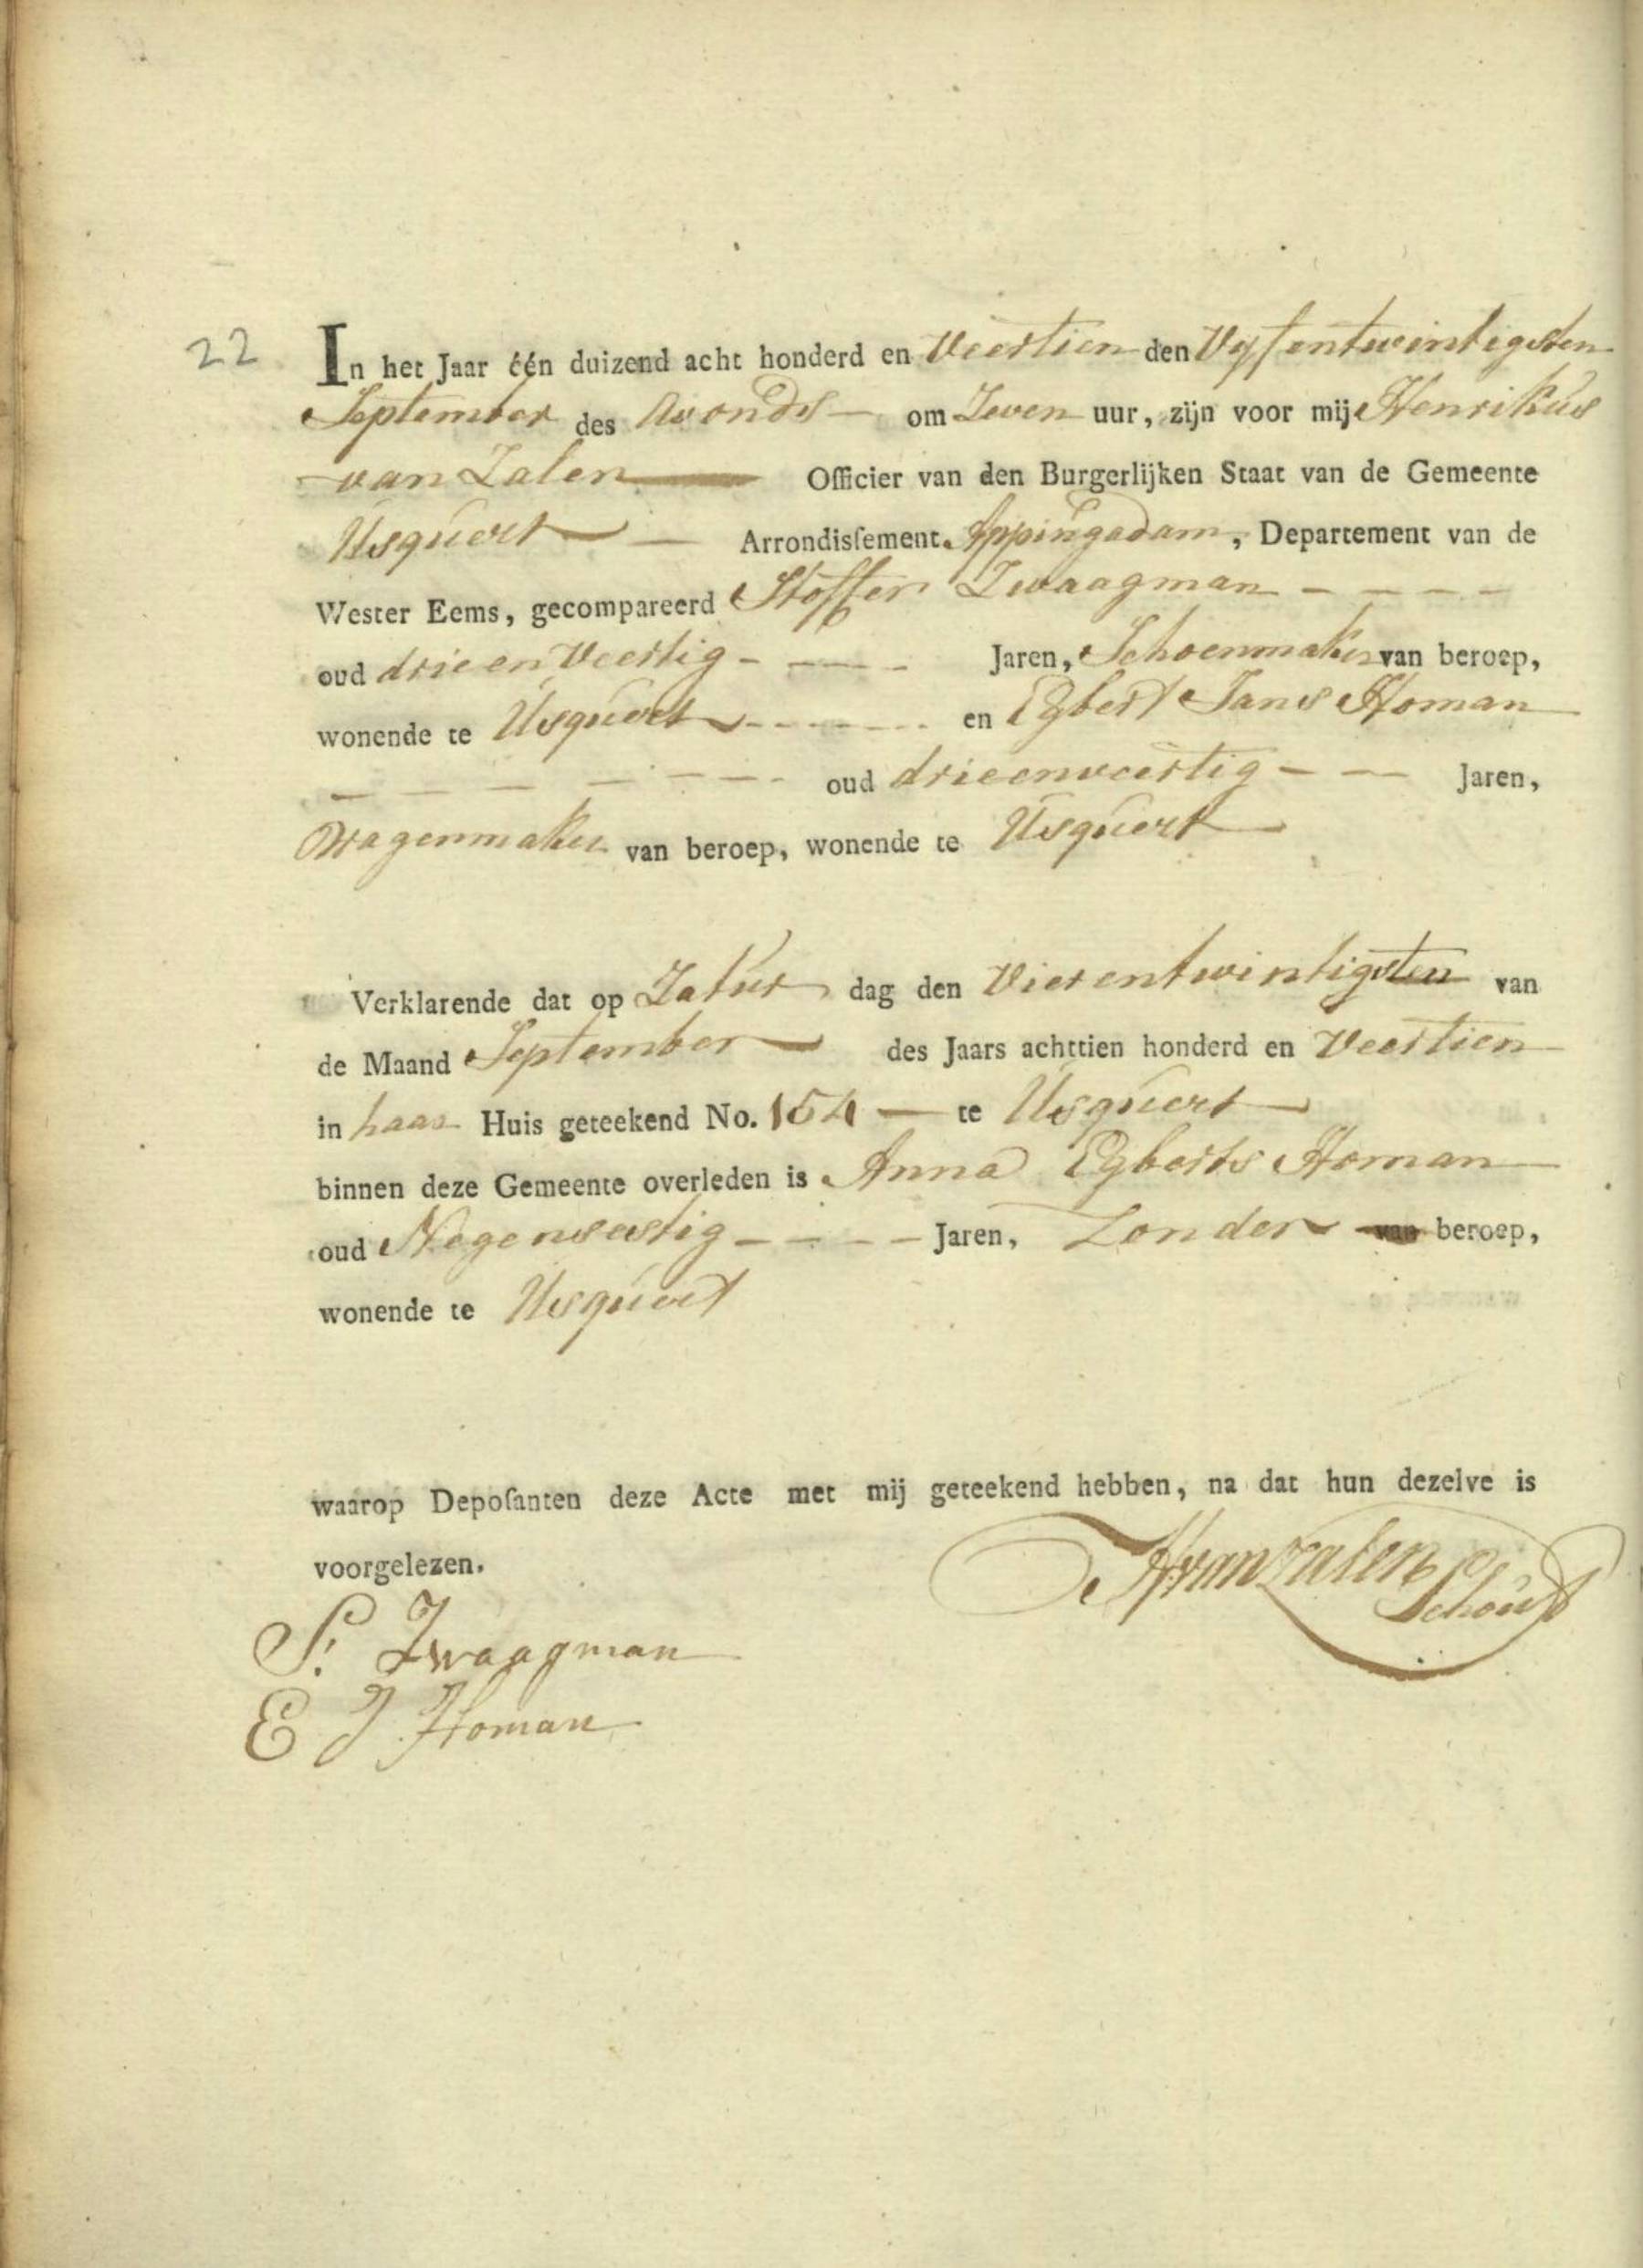 22 In het Jaar één duizend acht honderd en Veertien den Vyfentwintigsten
September des Avonds — om Zeven uur, zijn voor mij Henrikus
van Zalen — Officier van den Burgerlijken Staat van de Gemeente
Usquert — Arrondisſement Appingadam, Departement van de
Wester Eems, gecompareerd Stoffer Zwaagman - - - -
oud drie en Veertig - - - - Jaren, Schoenmaker van beroep,
wonende te Usquert - - - - en Egbert Jans Homan
- - - - - - - oud drieenveertig - - Jaren,
Wagenmaker van beroep, wonende te Usquert
Verklarende dat op Zatur dag den Vierentwintigsten van
de Maand September — des Jaars achttien honderd en Veertien
in haar Huis geteekend No. 154 — te Usquert
binnen deze Gemeente overleden is Anna Egberts Homan
oud Negensestig - - - - Jaren, Zonder van beroep,
wonende te Usquert
waarop Depoſanten deze Acte met mij geteekend hebben, na dat hun dezelve is
voorgelezen.
HvanZalen
Schout
S. Zwaagman
E J Homan